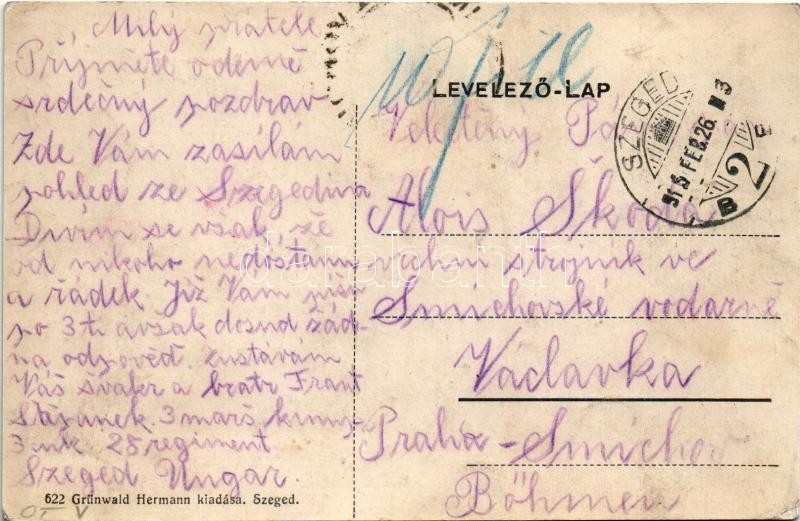 Milý přátele
Přijměte odemě
srdečný pozdrav
Zde Vám zasílám
pohled ze Szegedina
Divím se však, že
od nikoho nedostanu
a řádek. Již Vám píši
po 3tí avšak dosud žád-
na odpověd. zustávám
Váš švakr a bratr Frant
Stepanek. 3 marš kump.
25 regiment
Szeged Ungar.
622 Grünwald Hermann kiadása. Szeged.
LEVELEZŐ-LAP
SZEGED
FEB.26.
2
B
Velectěný
Alois Škoda
vrchní strojník ve
Smichovské vodarně
Václavka
Praha-Smichov
Böhmen
darabanth